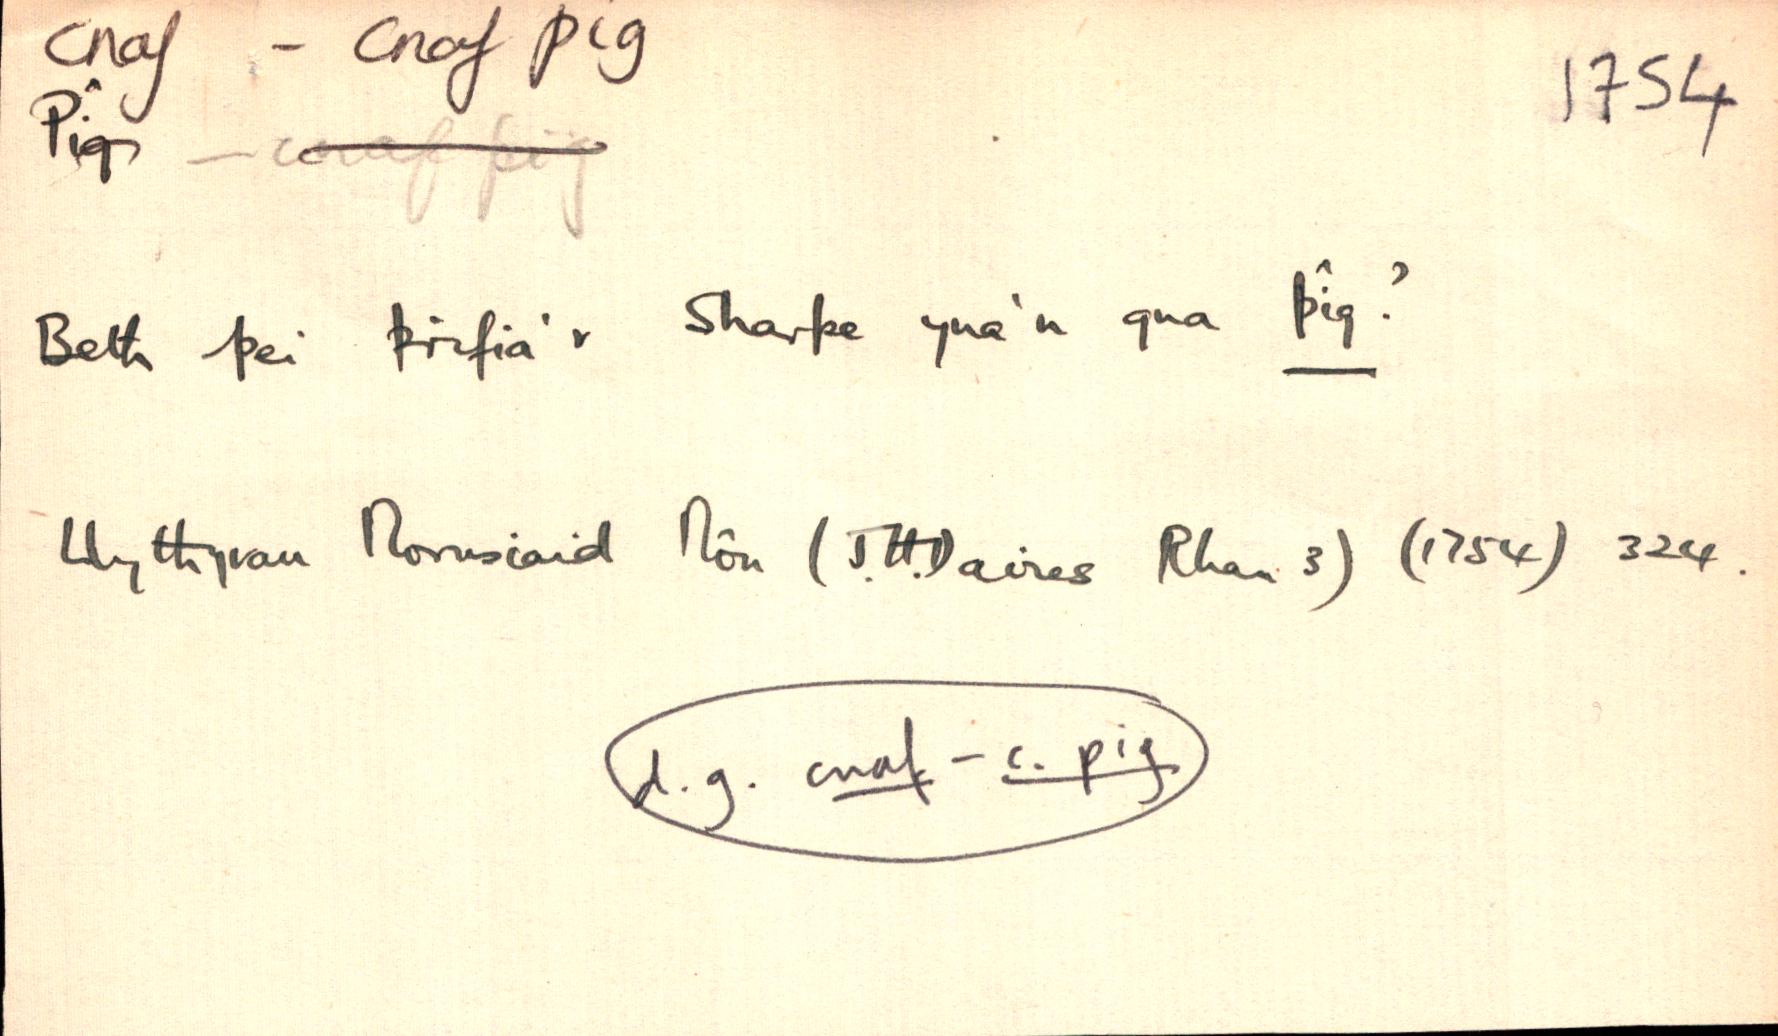 cnaf - cnaf pig
1754
Pîg - cnaf pig
Beth pei pisfia'r Sharpe yna'n qua pîg?
Llythyrau Morrisiaid Môn (J.H.Davies Rhan 3) (1754) 324.
d.g. cnaf - c. pig